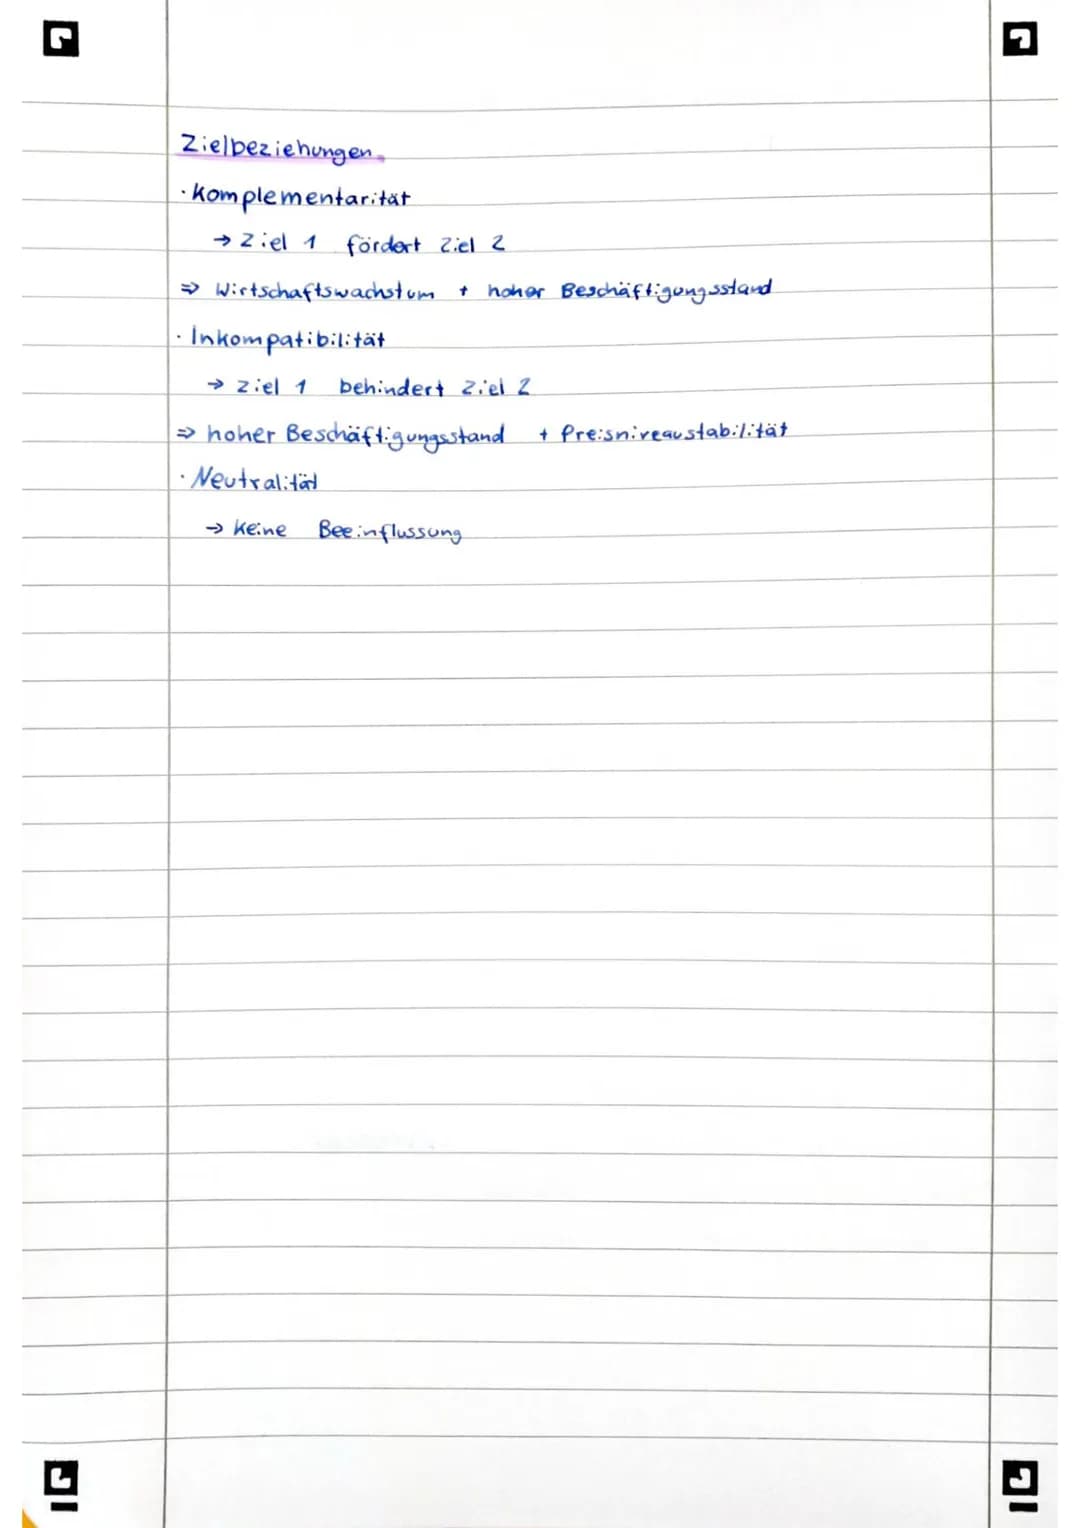 Zielbeziehungen
· Komplementarität
→ Ziel 1 fördert Ziel 2
⇒ Wirtschaftswachstum + hoher Beschäftigungsstand
· Inkompatibilität
→ Ziel 1 behindert Ziel 2
⇒ hoher Beschäftigungsstand + Preisniveaustabilität
· Neutralität
→ keine Beeinflussung